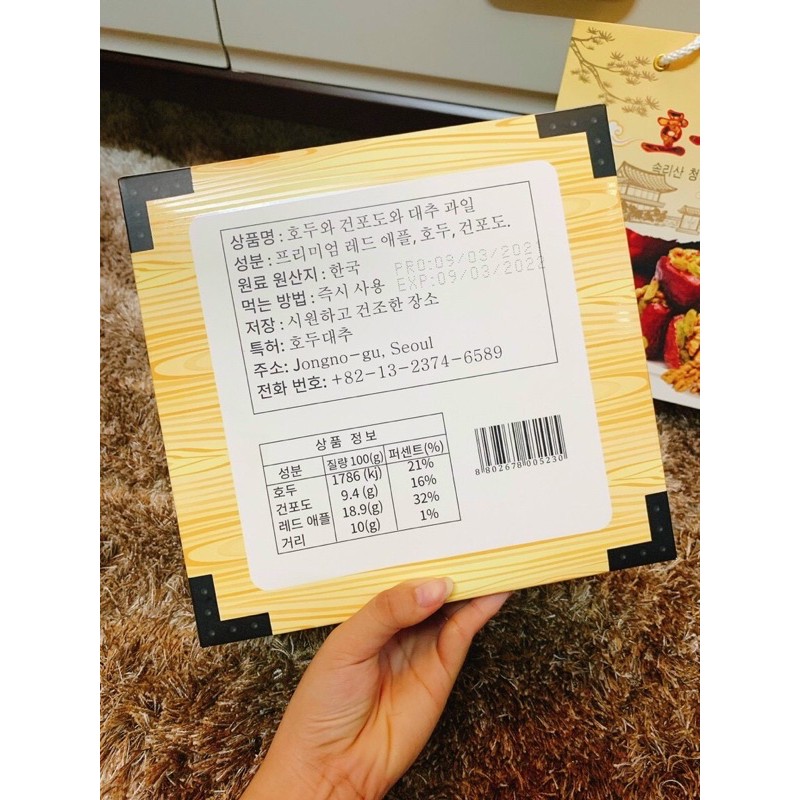 속리산 청
상품명 : 호두와 건포도와 대추 과일
성분 : 프리미엄 레드 애플, 호두, 건포도.
원료 원산지 : 한국
PRO:09/03/2021
먹는 방법 : 즉시 사용
EXP:09/03/2022
저장 : 시원하고 건조한 장소
특허: 호두대추
주소: Jongno-gu, Seoul
전화 번호: +82-13-2374-6589
상품 정보
성분 질량 100(g) 퍼센트(%)
호두 1786 (kj) 21%
건포도 9.4 (g) 16%
레드 애플 18.9(g) 32%
거리 10(g) 1%
8 802678 005230